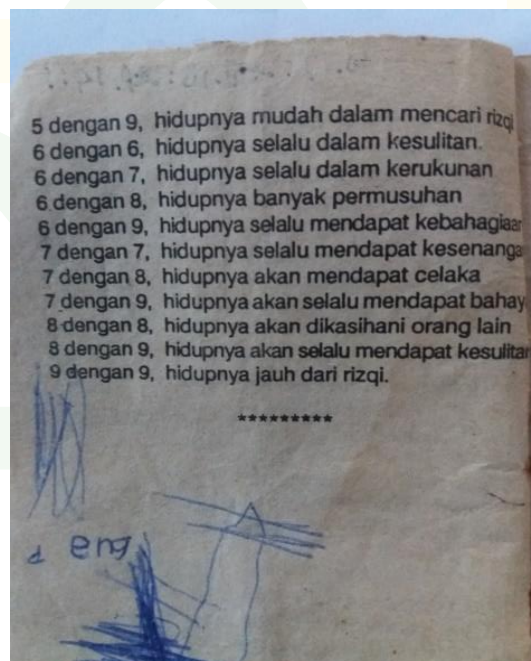 5 dengan 9, hidupnya mudah dalam mencari rizqi
6 dengan 6, hidupnya selalu dalam kesulitan.
6 dengan 7, hidupnya selalu dalam kerukunan
6 dengan 8, hidupnya banyak permusuhan
6 dengan 9, hidupnya selalu mendapat kebahagiaan
7 dengan 7, hidupnya selalu mendapat kesenanga
7 dengan 8, hidupnya akan mendapat celaka
7 dengan 9, hidupnya akan selalu mendapat bahay
8 dengan 8, hidupnya akan dikasihani orang lain
8 dengan 9, hidupnya akan selalu mendapat kesulitan
9 dengan 9, hidupnya jauh dari rizqi.
*********